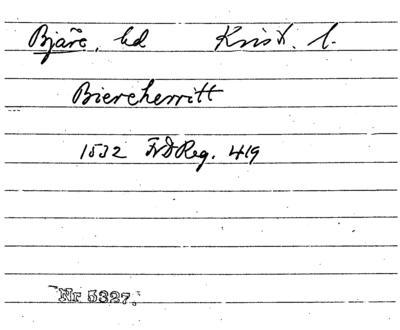 Bjäre, hd Krist. l.
Biercherritt
1532 FrDReg. 419
Nr 5327.